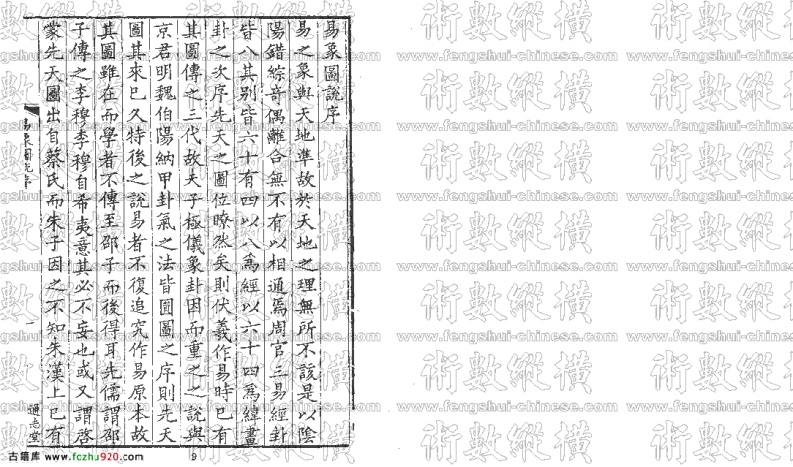 易象圖說序
易之象與天地準故於天地之理無所不該是以陰
陽錯綜奇偶離合無不有以相通焉周官三易經卦
皆八其别皆六十有四以八爲經以六十四爲緯畫
卦之次序先天之圖位瞭然矣則伏羲作易時已有
其圖傳之三代故夫子極儀象卦因而重之之說與
京君明魏伯陽納甲卦氣之法皆圓圖之序則先天
圖其來已久特後之說易者不復追究作易原本故
其圖雖在而學者不傳至邵子而後得耳先儒謂邵
子傳之李穆李穆自希夷意其必不妄也或又謂啓
蒙先天圖出自蔡氏而朱子因之不知朱漢上已有
易象圖說序
一
通志堂
古籍库 www.fozhu920.com
9
術數縱橫
www.fengshui-chinese.com